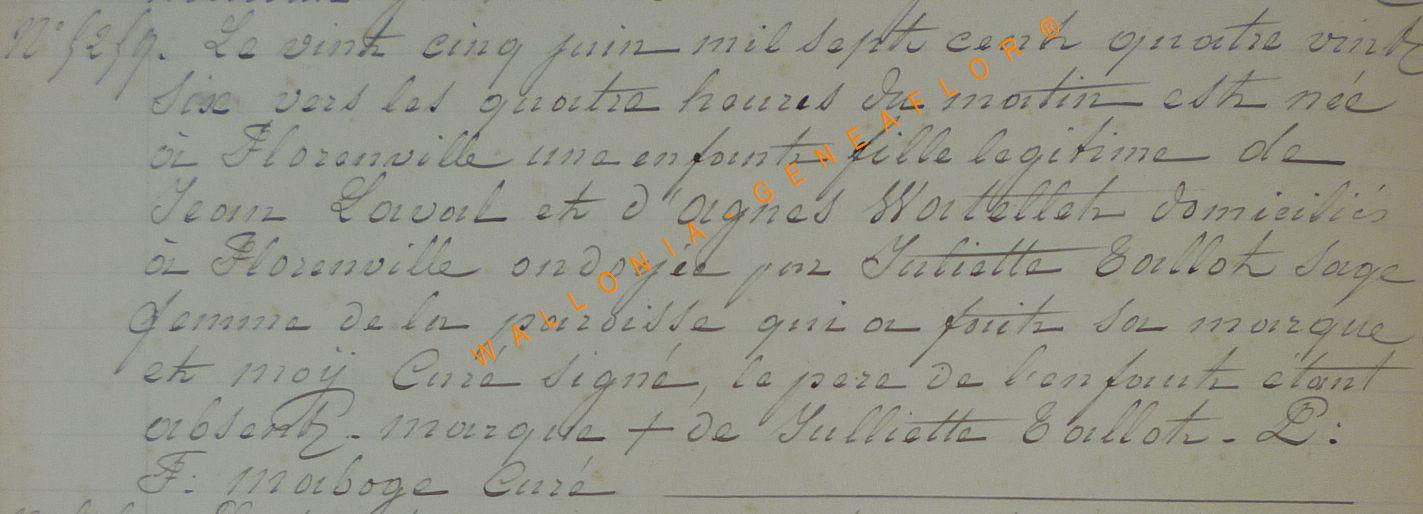 N° 5259. Le vint cinq juin mil sept cent quatre vint
six vers les quatre heures du matin est née
à Florenville une enfant fille legitime de
Jean Laval et d'agnes Watellet domiciliés
à Florenville ondoyée par Juliette Tallot sage
femme de la paroisse qui a fait sa marque
et moÿ Curé signé, le pere de l'enfant étant
absent. marque + de Julliette Tallot. P:
F: maboge Curé
WALLONIA - GENEAFLOR ®